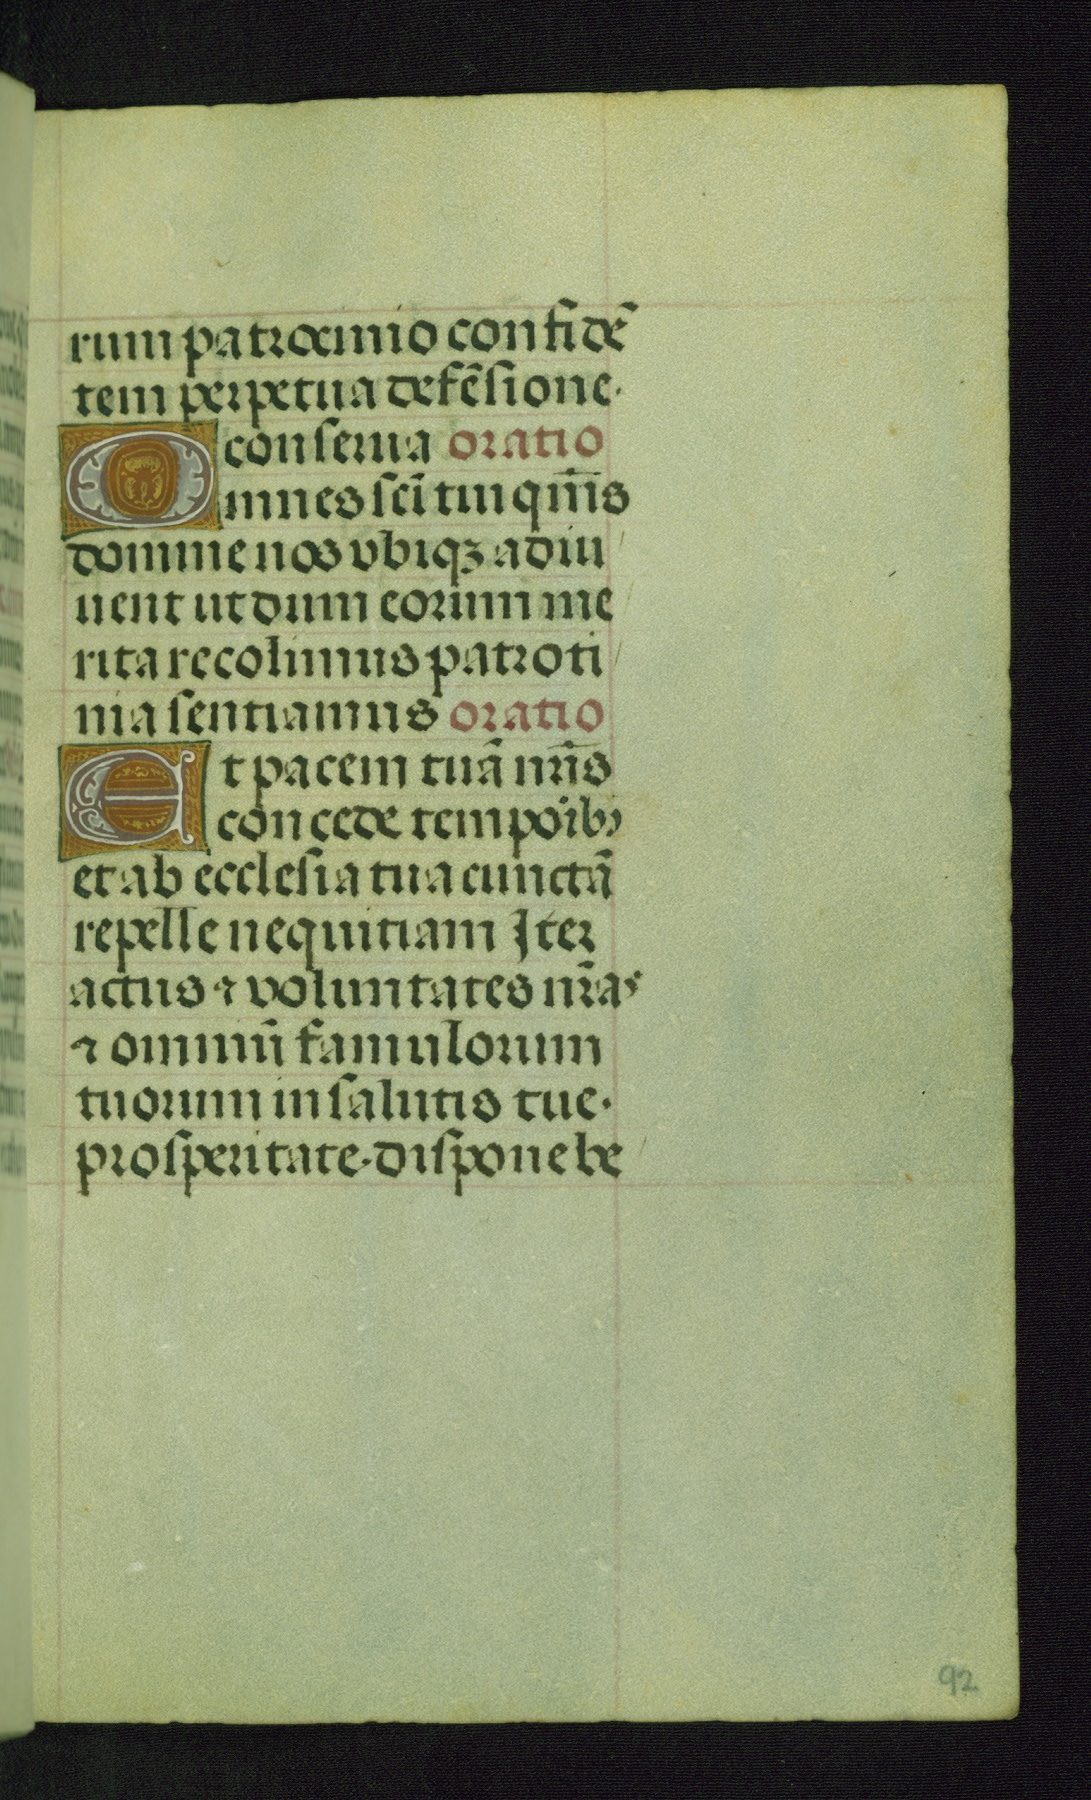 rum patrocinio confidē
tem perpetua defēsione·
conserua oratio
Omnes scī tui qm̄s
domine nos vbiqꝫ adiu
uent ut dum eorum me
rita recolimus patroti
nia sentiamus oratio
Et pacem tuā nr̄is
concede temporibꝰ
et ab ecclesia tua cunctā
repelle nequitiam Iter
actus ⁊ voluntates nr̄as
⁊ omniū famulorum
tuorum in salutis tue·
prosperitate·dispone be
92